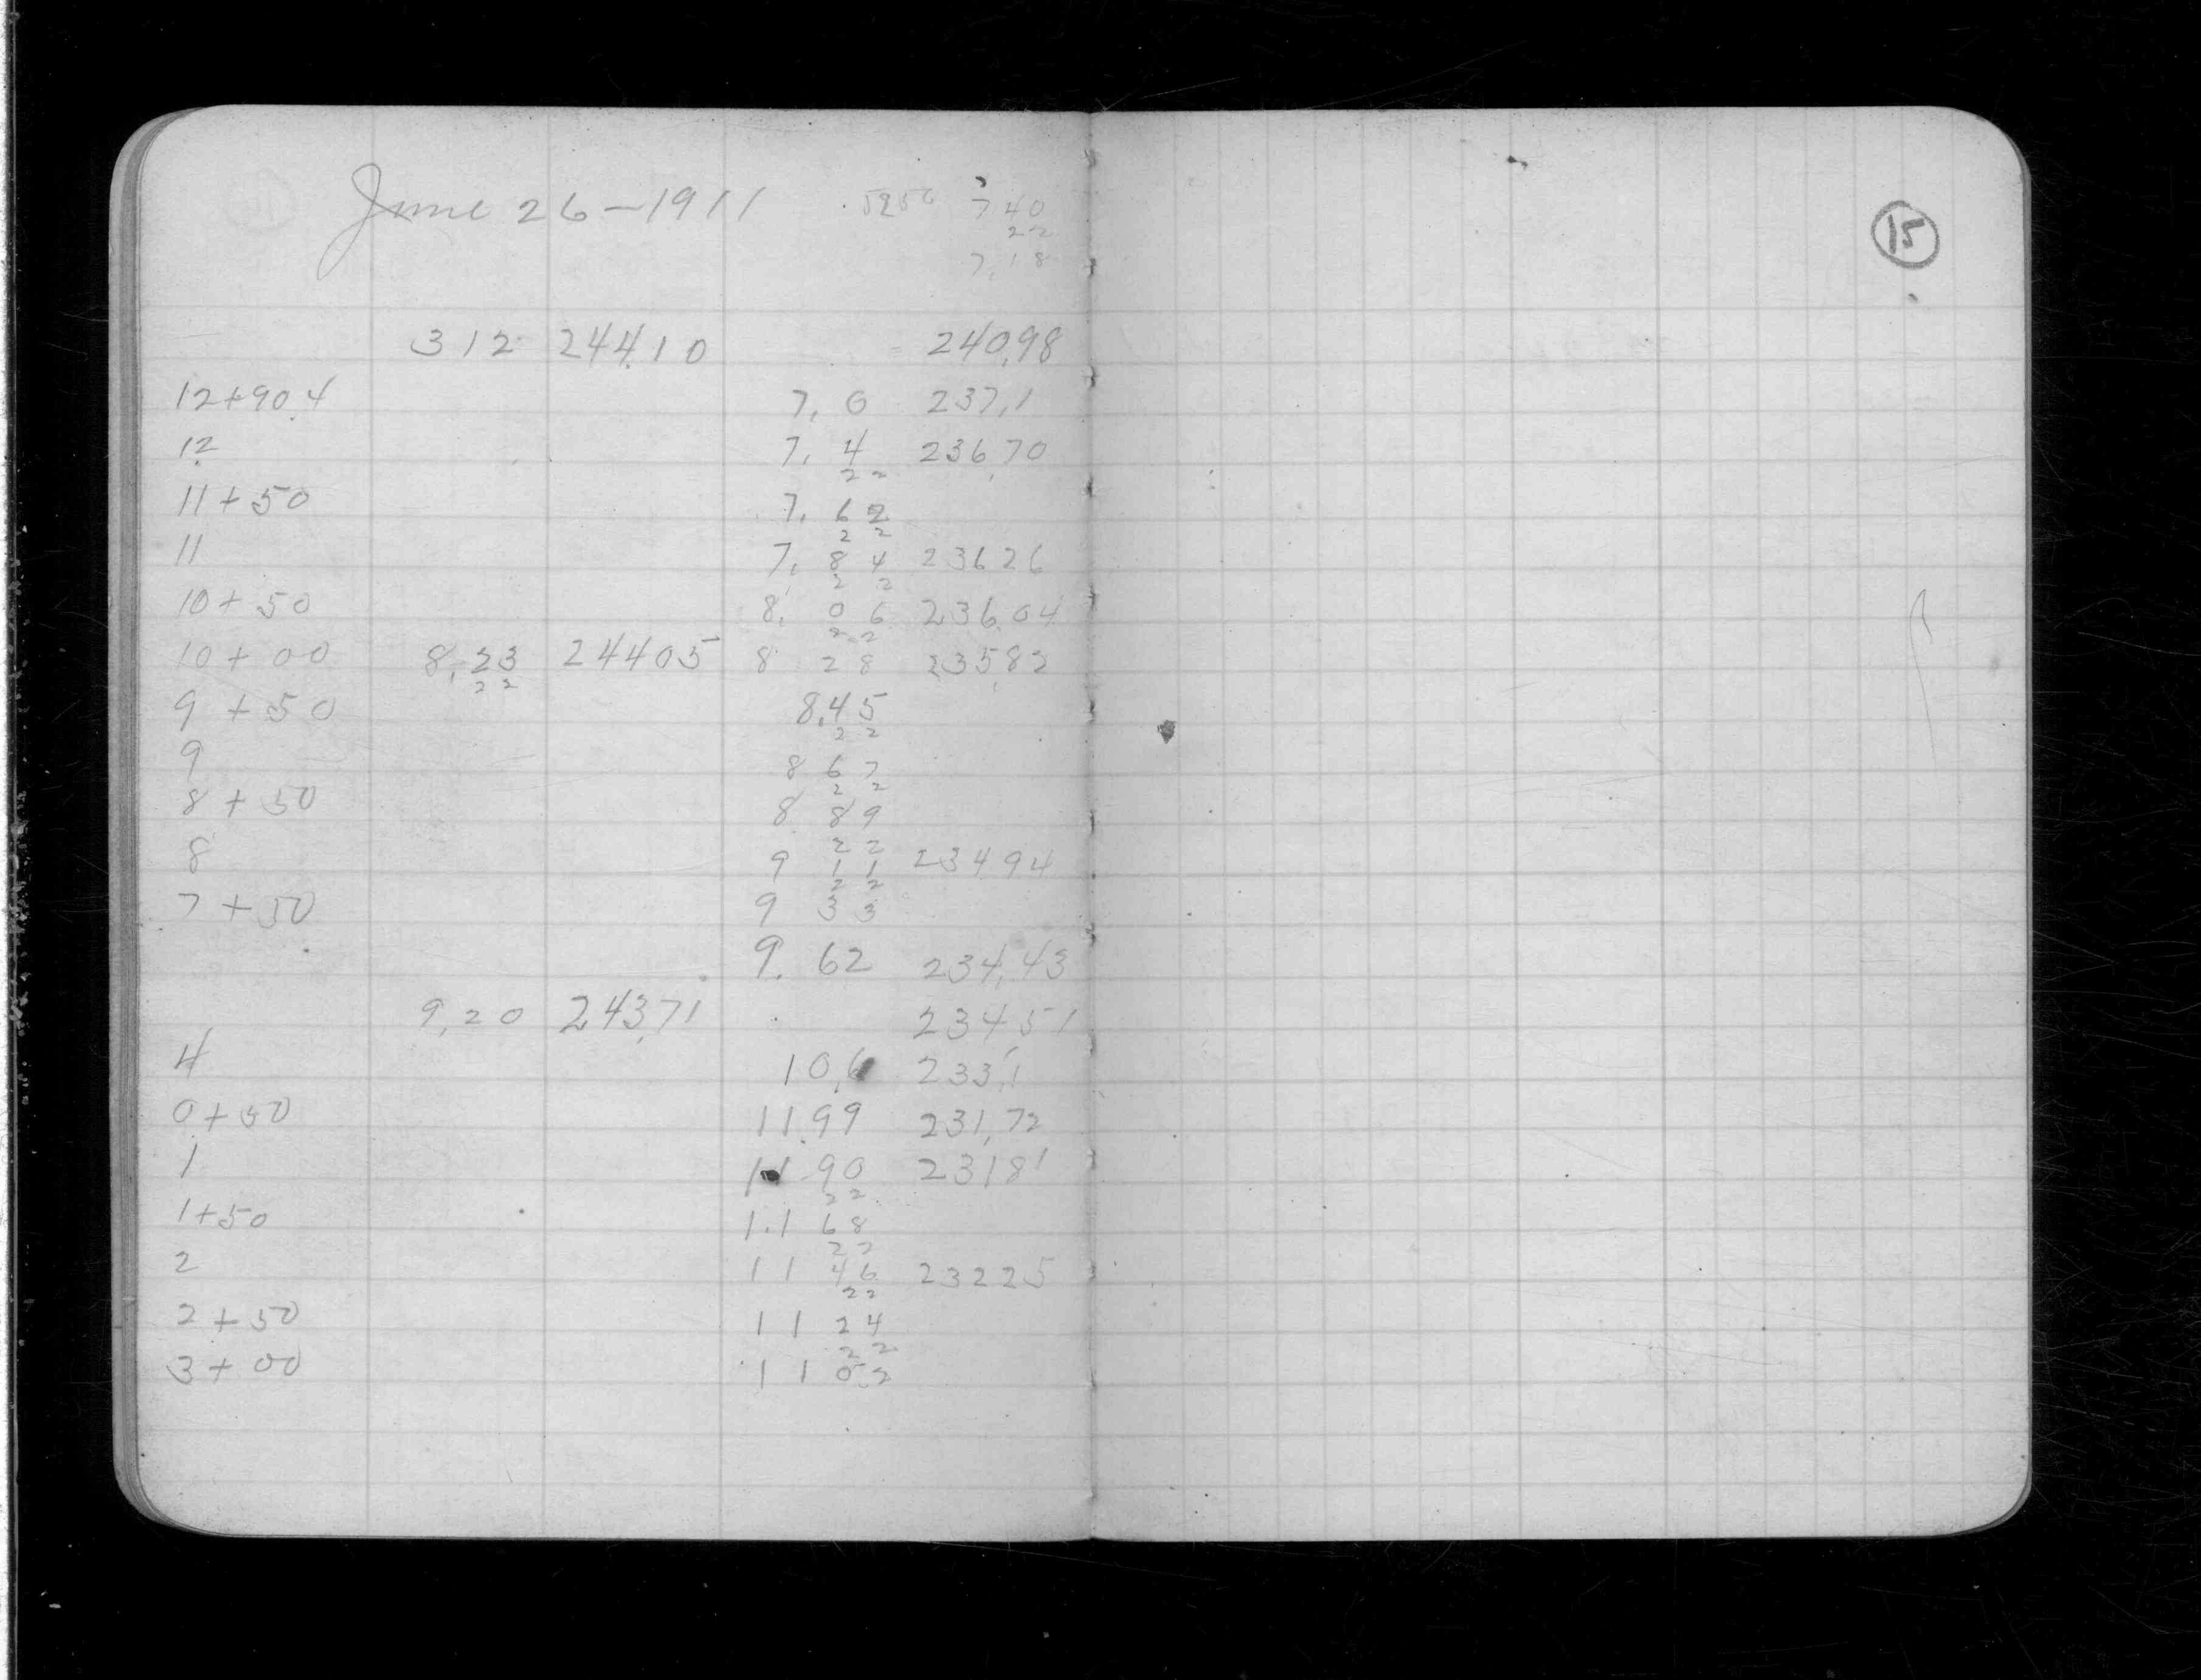 June 26-1911 5256 7 40
22
7,18
312 244.10 240.98
12+90.4 7, 0 237,1
12 7, 4 236,70
22
11+50 7, 62
22
11 7, 84 23626
22
10+50 8, 06 236.04
22
10+00 8,23 24405 8 28 235,82
22
9+50 8,45
22
9 8 67
22
8+50 8 89
22
8 9 11 23494
22
7+50 9 33
9. 62 234,43
9,20 243,71 234,51
4 10,6 233,1
0+50 11.99 231,72
1 11 90 23181
22
1+50 11 68
22
2 11 46 23225
22
2+50 11 24
22
3+00 11 02
15